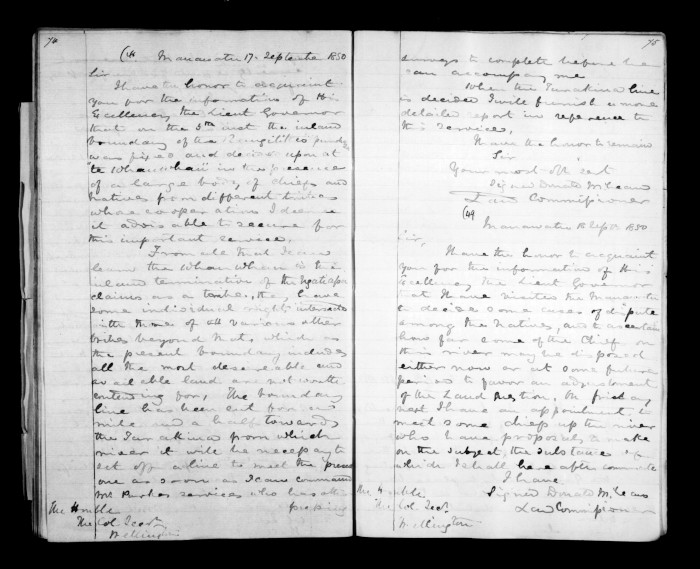 74
(48 Manawatu 17. September 1850
Sir
I have the honor to acquaint
you for the information of His
Excellency the Lieut Governor
that on the 5th inst the inland
boundary of the Rangitikei purchase
was fixed and decided upon at
"te Whau Whau" in the presence
of a large body of chiefs and
natives from different tribes
whose cooperation I deemed
it advisable to secure for
this important service.
From all that I can
learn the Whau Whau is the
inland termination of the Ngatiapa
claims as a tribe, they have
some individual rights intersected
with those of various other
tribes beyond that, which as
the present boundary includes
all the most desireable and
available land are not worth
contending for. The boundary
line has been cut for a
mile and a half towards
the Turakina from which
river it will be necessary to
cut off a line to meet the present
one as soon as I can command
Mr Parkes services who has other
pressing
The Honble
The Col Secty
Wellington
75
surveys to complete before he
can accompany me
When the Turakina line
is decided I will furnish a more
detailed report in reference to
this service.
I have the honor to remain
Sir
Your most obt sert
Signed Donald McLean
Land Commissioner
(49
Manawatu 18 Sept 1850
Sir,
I have the honor to acquaint
you for the information of His
Excellency the Lieut Governor
that I have visited the Manawatu
to decide some cases of dispute
among the Natives, and to ascertain
how far some of the Chiefs on
this river may be disposed
either now or at some future
period to favor an adjustment
of the Land Question. On friday
next I have an appointment to
meet some chiefs up the river
who have proposals to make
on the subject, the substance of
which I shall hereafter communicate
I have
Signed Donald McLean
Land Commissioner
The Honble
The Col Secty
Wellington